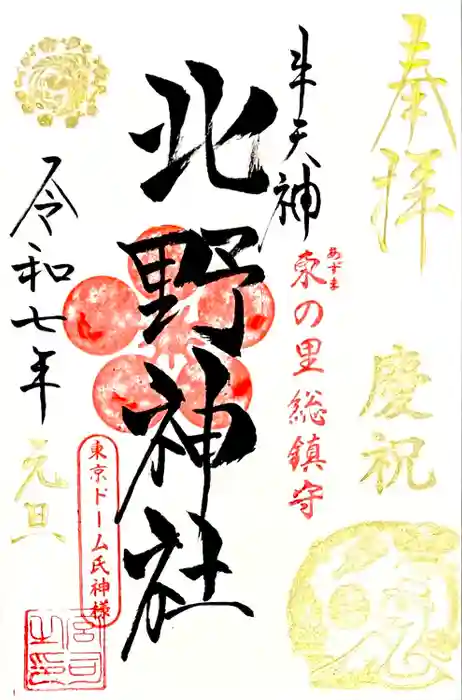 奉拝
慶祝
牛天神
あずま
東の里総鎮守
北野神社
東京ドーム氏神様
令和七年
元旦
宮司之印